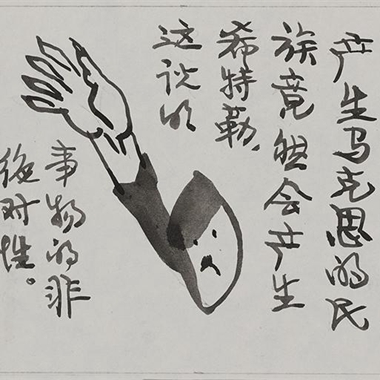 产生马克思的民
族竟然会产生
希特勒，
这说明
事物的非
绝对性。